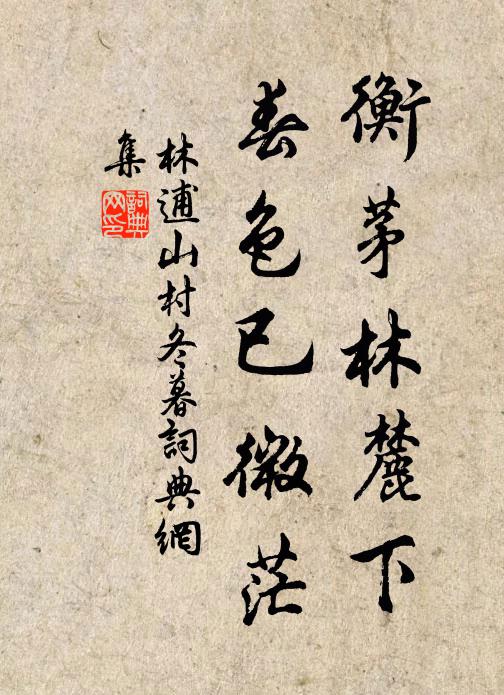 衡茅林麓下
春色已微茫
林逋山村冬暮詞典網
集
詞典
网印